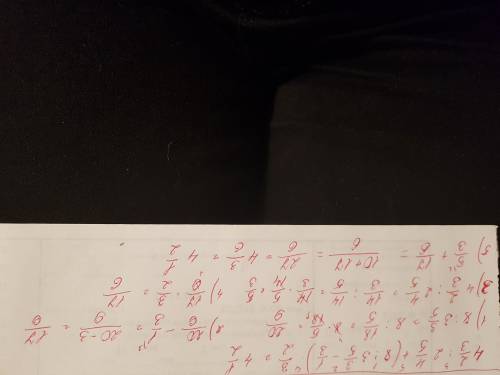 4 2/3 : 2 4/5 + (8 : 3 3/5 − 1/3) · 3/2 = 4 1/2
1) 8 : 3 3/5 = 8 : 18/5 = 8 · 5/18 = 20/9 2) 20/9 − 1/3 = 20-3/9 = 17/9
3) 4 2/3 : 2 4/5 = 14/3 : 14/5 = 14/3 · 5/14 = 5/3 4) 17/9 · 3/2 = 17/6
5) 5/3 + 17/6 = 10+17/6 = 27/6 = 4 3/6 = 4 1/2